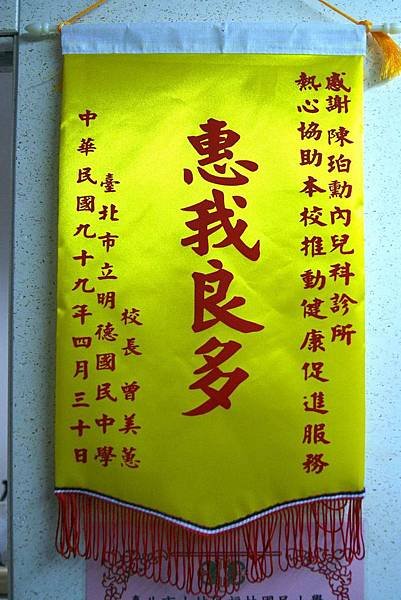 感謝陳珀勳內兒科診所
熱心協助本校推動健康促進服務
惠我良多
校長曾美蕙
臺北市立明德國民中學
中華民國九十九年四月三十日